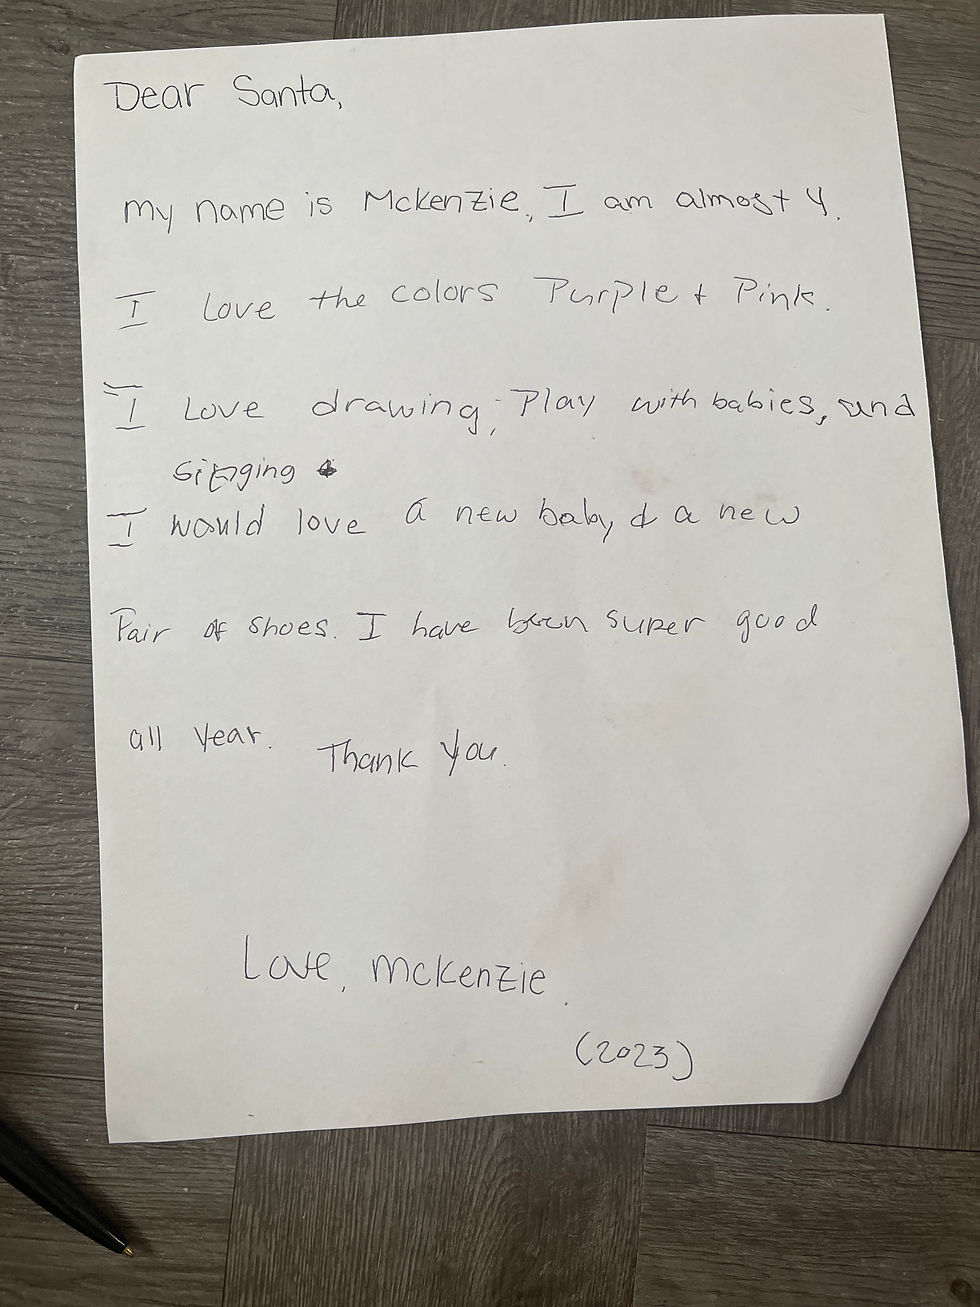 Dear Santa,
my name is Mckenzie, I am almost 4.
I Love the colors Purple + Pink.
I Love drawing, Play with babies, and
singing
I would love a new baby & a new
Pair of shoes. I have been super good
all year. Thank you.
Love, mckenzie.
(2023)